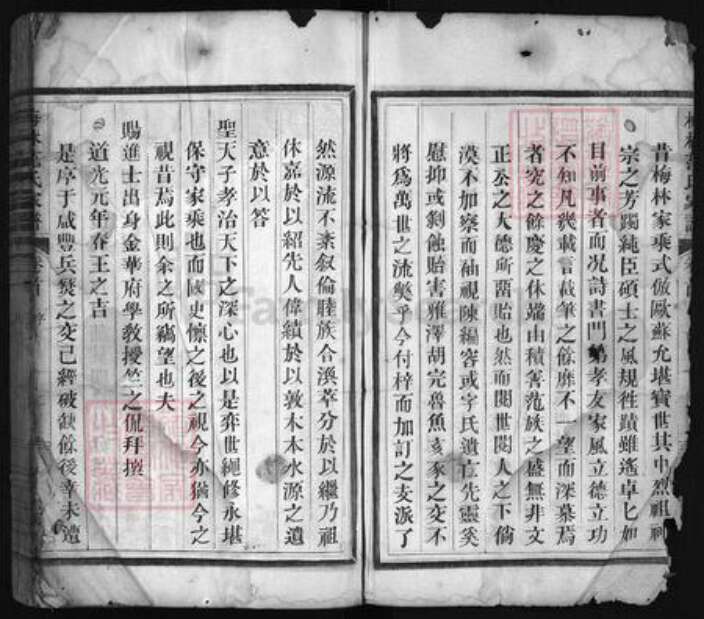 昔梅林家乘式倣歐蘇允堪寶世其中烈祖
宗之芳躅純臣碩士之風規往蹟雖遙卓匕如
目前事者而况詩書門第孝友家風立德立功
不知凡幾載言載筆之餘靡不一望而深慕焉
者究之餘慶之休端由積善范族之盛無非文
正公之大德所畱貽也然而閱世閱人之下倘
漠不加察而袖視陳編容或字氏遺亡先靈奚
慰抑或剝蝕貽害雅澤胡完魯魚亥豕之变不
將為萬世之流獘乎今付梓而加訂之支派了
然源流不紊叙倫睦族合渙萃分於以繼乃祖
休嘉於以紹先人偉績於以敦木本水源之遺
意於以答
聖天子孝治天下之深心也以是弈世繩修永堪
保守家乘也而國史懍之後之視今亦猶今之
視昔焉此則余之所竊望也夫
賜進士出身金華府學教授竺之侃拜撰
道光元年春王之吉
是序于咸豐兵燹之变已經破缺餘後幸未遭